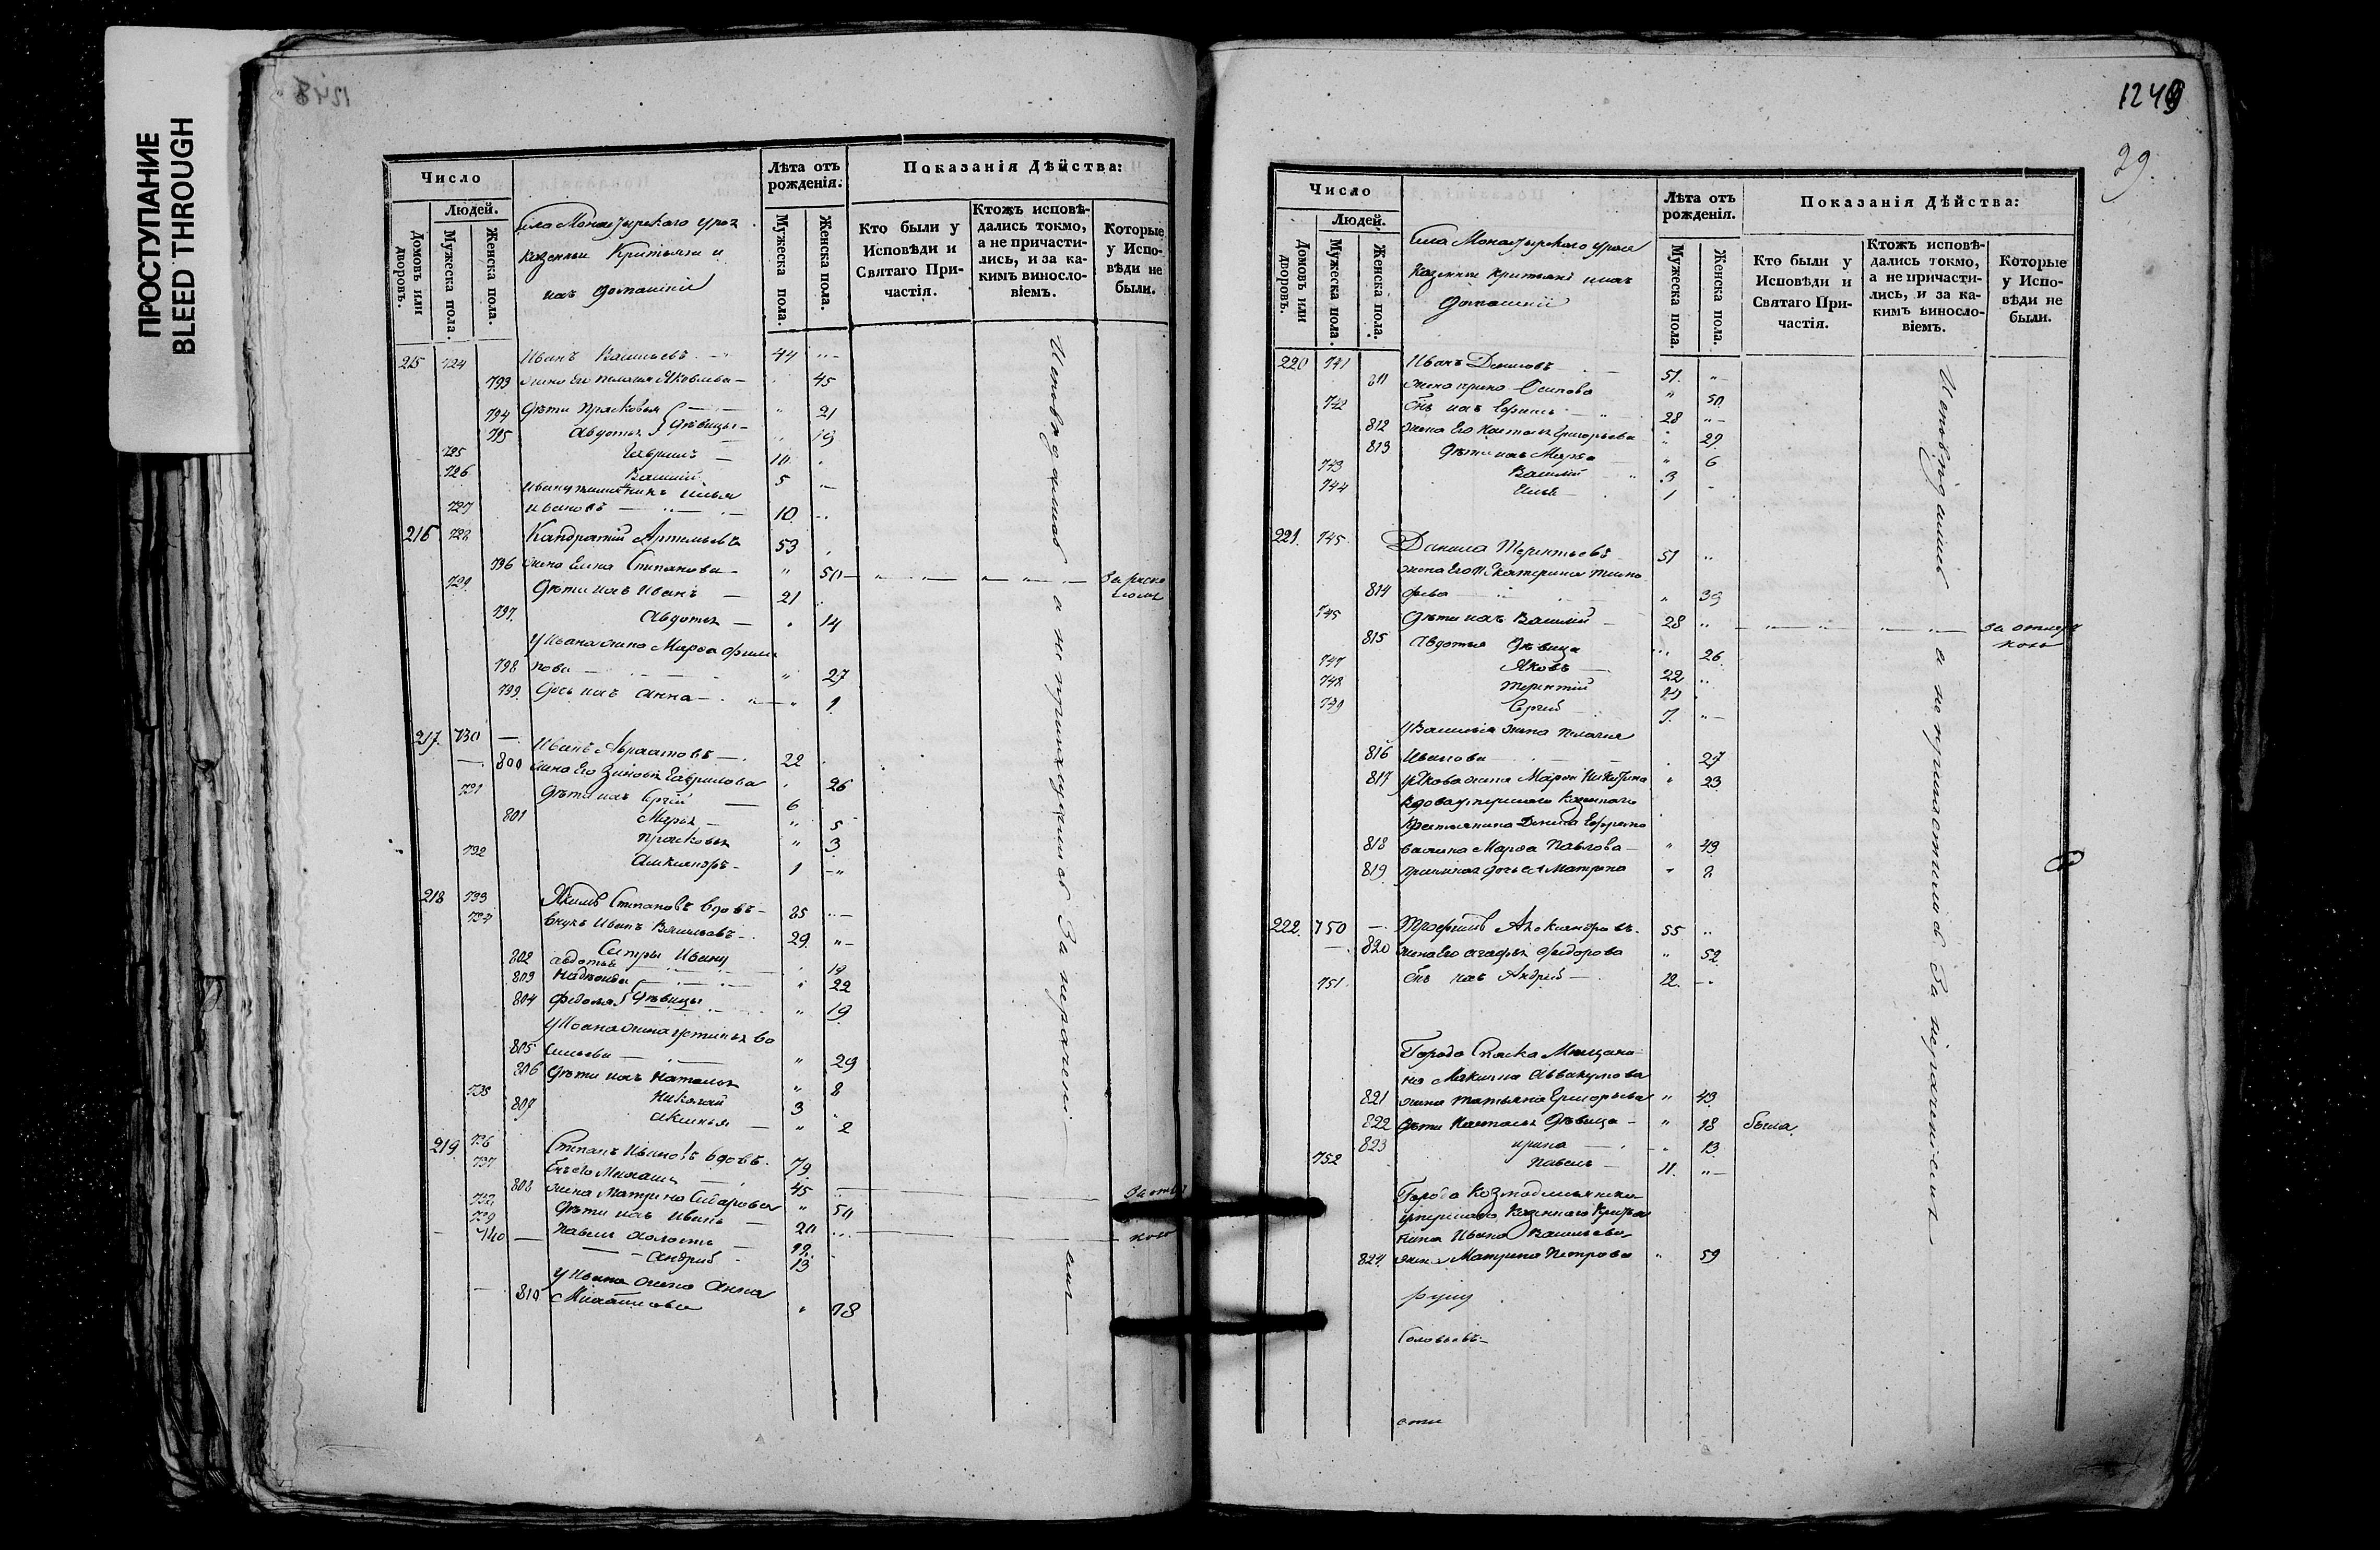 ПРОСТУПАНИЕ
BLEED THROUGH
1248
Число
Людей.
Домовъ или дворовъ.
Мужеска пола.
Женска пола.
Села Монастырскаго
казенные и
ихъ домашніи
Лѣта отъ рожденія.
Мужеска пола.
Женска пола.
Показанія Дѣйства:
Кто были у Исповѣди и Святаго При-частія.
Ктожъ исповѣ-дались токмо, а не причасти-лись, и за ка-кимъ винослo-віемъ.
Которые у Испо-вѣди не были.
215 724 Иванъ Васильевъ 44
793 жена его Пелагия Яковлева 45
794 дѣти Прасковья 21
795 Авдотья дѣвицы 19
725 Гавриилъ 10
726 Василий 5
Илья
727 Ивановъ 10
216 728 Кандратий Артемьевъ 53
796 жена Елена Степанова 50
729 дѣти ихъ Иванъ 21
797 Авдотья 14
У Ивана жена Марфа Фили
798 пова 27
799 дочь ихъ Анна 1
217 730 Иванъ Абрамовъ 22
800 жена его Зиновья Гаврилова 26
731 дѣти ихъ Сергій 6
801 Марья 5
Прасковья 3
732 Александръ 1
218 733 Якимъ Степановъ вдовъ 85
734 внукъ Иванъ Васильевъ 29
Сестры Ивану
802 Авдотья 19
803 Надежда 22
804 Федосья дѣвицы 19
У Ивана жена Устинья Ва
805 сильева 29
806 дѣти ихъ Наталья 8
735 Николай 3
807 Аксинья 2
219 736 Степанъ Ивановъ вдовъ 79
737 45
808 жена Матрена Сидорова 50
738 дѣти ихъ Иванъ 20
739 Павелъ холостъ
740 Андрей 13
У Ивана жена Анна
810 Михайлова 18
1249
29.
Число
Людей.
Домовъ или дворовъ.
Мужеска пола.
Женска пола.
Села Монастырскаго
казенные ихъ
домашніи
Лѣта отъ рожденія.
Мужеска пола.
Женска пола.
Показанія Дѣйства:
Кто были у Исповѣди и Святаго При-частія.
Ктожъ исповѣ-дались токмо, а не причасти-лись, и за ка-кимъ винослo-віемъ.
Которые у Испо-вѣди не были.
220 741 Иванъ Денисовъ 51
811 жена Ирина Осипова 50
742 сынъ ихъ Ефимъ 28
812 жена его Наталья Григорьева 29
813 дѣти ихъ Марфа 6
743 Василий 3
744 Илья 1
221. 745 Данила Терентьевъ 51
жена его Екатерина Тимо
814 феева 39
745 дѣти ихъ Василий 28
815 Авдотья дѣвица 26
747 Яковъ 22
748 Терентий
749 Сергей 7
У Василия жена Пелагея
816 Иванова 27
817 у Якова жена Марья Никитина 23
вдова умершаго казеннаго
крестьянина Дениса Ефремо
818 ва жена Марфа Павлова 49
819 дочь ея Матрена 2
222. 750 Трофимъ Александровъ 55
820 жена его Агафья Федорова 52
751 сынъ ихъ Андрей 12
Города Спаска Мещани
на Аввакумова
821 жена Татьяна Григорьева 43
822 дѣти Наталья дѣвица 18 была
823 Ирина 13
752 Павелъ 11
Города Козмодемьянска
умершаго казеннаго крестья
нина Ивана Васильева
824 жена Матрена Петрова 59